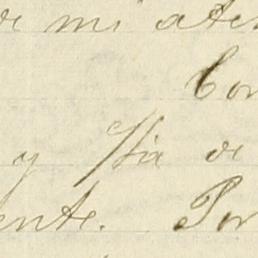 de mi aten
Con
y Sta de
ente. Por